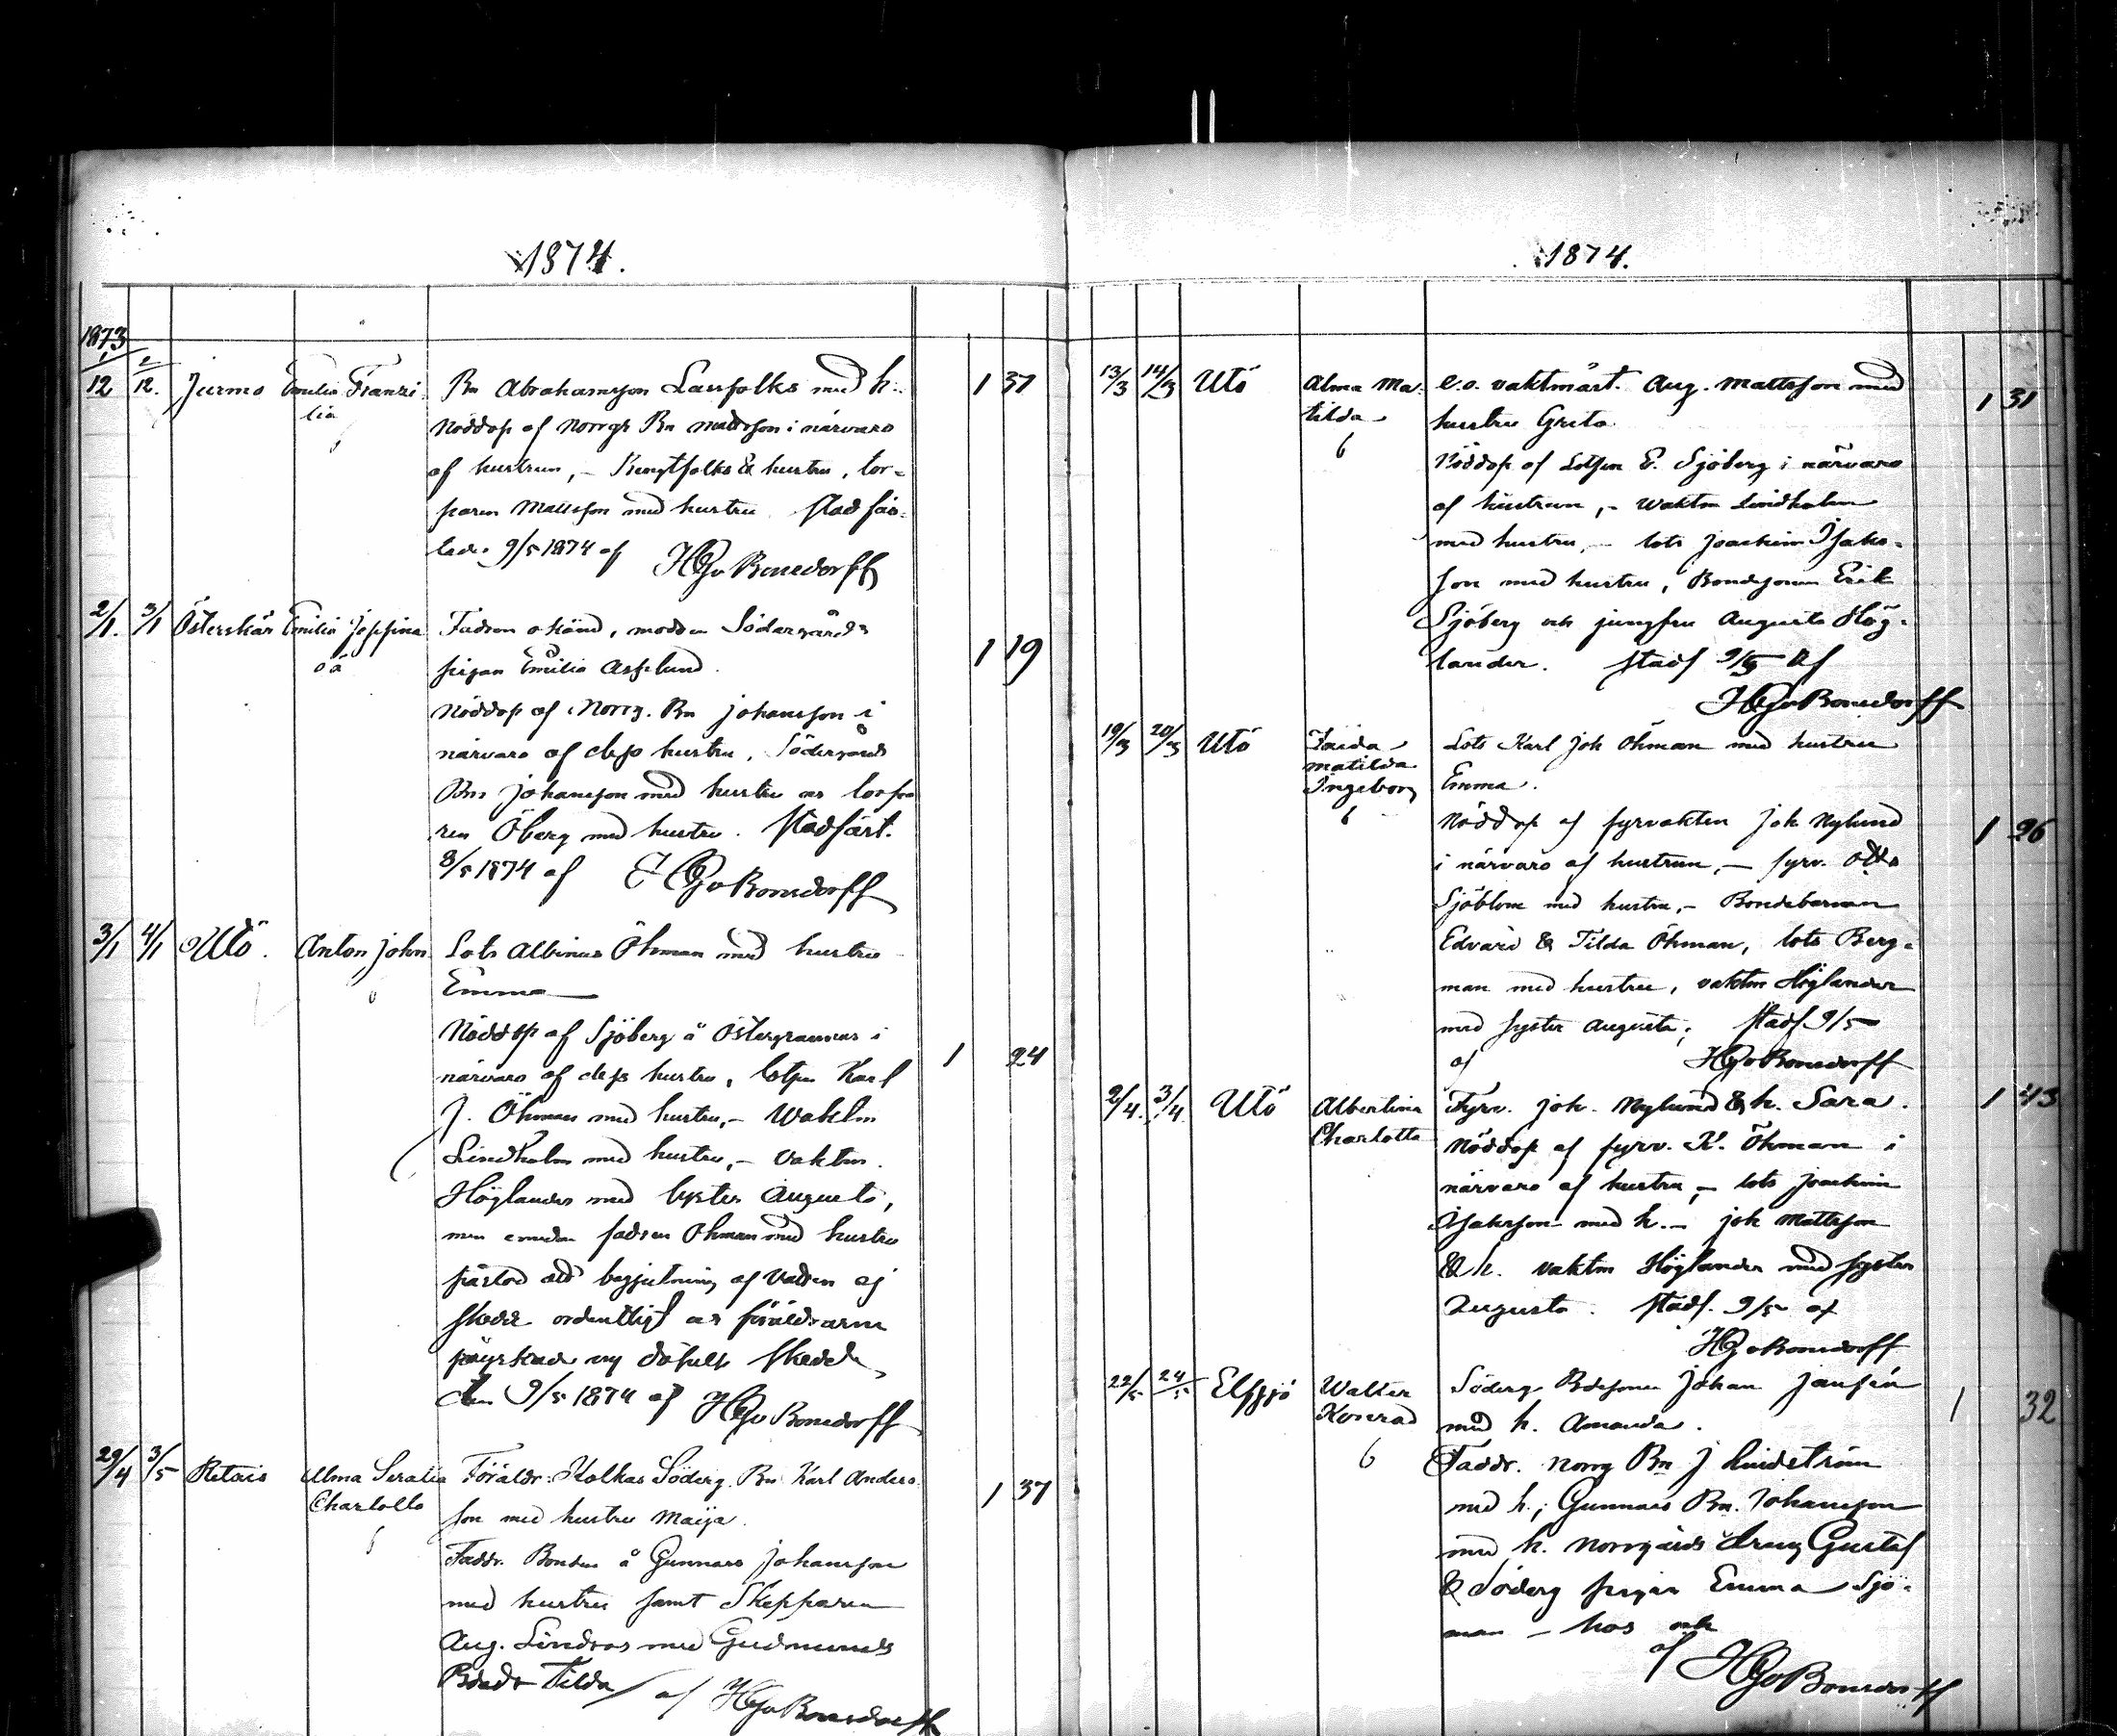 1874.
1873
1/12 2/12. Jurmo Emilia Franzi- Bn Abrahamsson Lassfolks med h. 1 37
lia
Nöddöp af Norrgs Bn Mattsson i närvaro
af hustrun, – & hustru, tor-
paren Mattsson med hustru. Stadfäs-
tades 9/5 1874 af HGvBonsdorff
2/1. 3/1 Österskär Emilia Josefina Fadren okänd, modren Södergårds 1 19
oä pigan Emilia Asplund.
Nöddöp af Norrg. Bn Johansson i
närvaro af dess hustru, Södergårds
Bn Johansson med hustru oc torpa
ren Öberg med hustru. Stadfäst.
8/5 1874 af HGvBonsdorff
3/1 4/1 Utö. Anton John Lots Albinus Öhman med hustru
Emma
Nöddöp af Sjöberg å Östergrannas i 1 24
närvaro af dess hustru, lotsen Karl
J. Öhman med hustru, – Waktm
Lindholm med hustru, – Vaktm.
Höglander med syster Augusta,
men emedan fadren Öhman med hustru
påstod att begjutning af vatten ej
skedde ordentligt oc föräldrarne
påyrkade ny döfelse skedde
den 9/5 1874 af HGvBonsdorff
29/4 3/5 Retais Alma Serafia Föräldr. Kolkas Söderg. Bn Karl Anders- 1 37
Charlotta son med hustru Maija.
Faddr. Bonden å Gunnars Johansson
med hustru samt Skepparen
Aug. Lindroos med Gudmunds
Bdedr Tilda / af HGvBonsdorff
1874.
13/3 14/3 Utö Alma Ma- e.o. vaktmäst. Aug. Mattsson med 1 31
tilda hustru Greta.
6 Nöddöp af Lotsen E. Sjöberg i närvaro
af hustrun, – Waktm Lindholm
med hustru, – lots Joachim Isaks-
son med hustru, Bondesonen Erik
Sjöberg och jungfru Augusta Hög-
lander. Stadf 9/5 af
HGvBonsdorff
19/3 20/3 Utö Faida Lots Karl Joh Öhman med hustru
Matilda
Ingeborg Emma.
6 Nöddöp af fyrvakten Joh Nylund 1 26
i närvaro af hustrun, – fyrv. Otto
Sjöblom med hustru, – Bondebarnen
Edvard & Tilda Öhman, lots Berg-
man med hustru, vaktm Höglander
med syster Augusta; Stadf 9/5
af HGvBonsdorff
2/4. 3/4. Utö Albertina Fyrv. Joh. Nylund & h. Sara. 1 43
Charlotta Nöddöp af fyrv. K. Öhman i
närvaro af hustru, – lots Joachim
Isaksson med h. – Joh Mattsson
& h. vaktm Höglander med syster
Augusta. Stadf. 9/5 af
HGvBonsdorff
22/5 24/5 Elfsjö Walter Söderg. Bdesonen Johan Jansén 1 32
Konrad med h. Amanda.
6 Faddr. Norrg Bn J Lindström
med h.; Gunnars Bn. Johansson
med h. Norrgårds dräng Gustaf
& Söderg pigan Emma Sjö-
man – hos och
af HGvBonsdorff